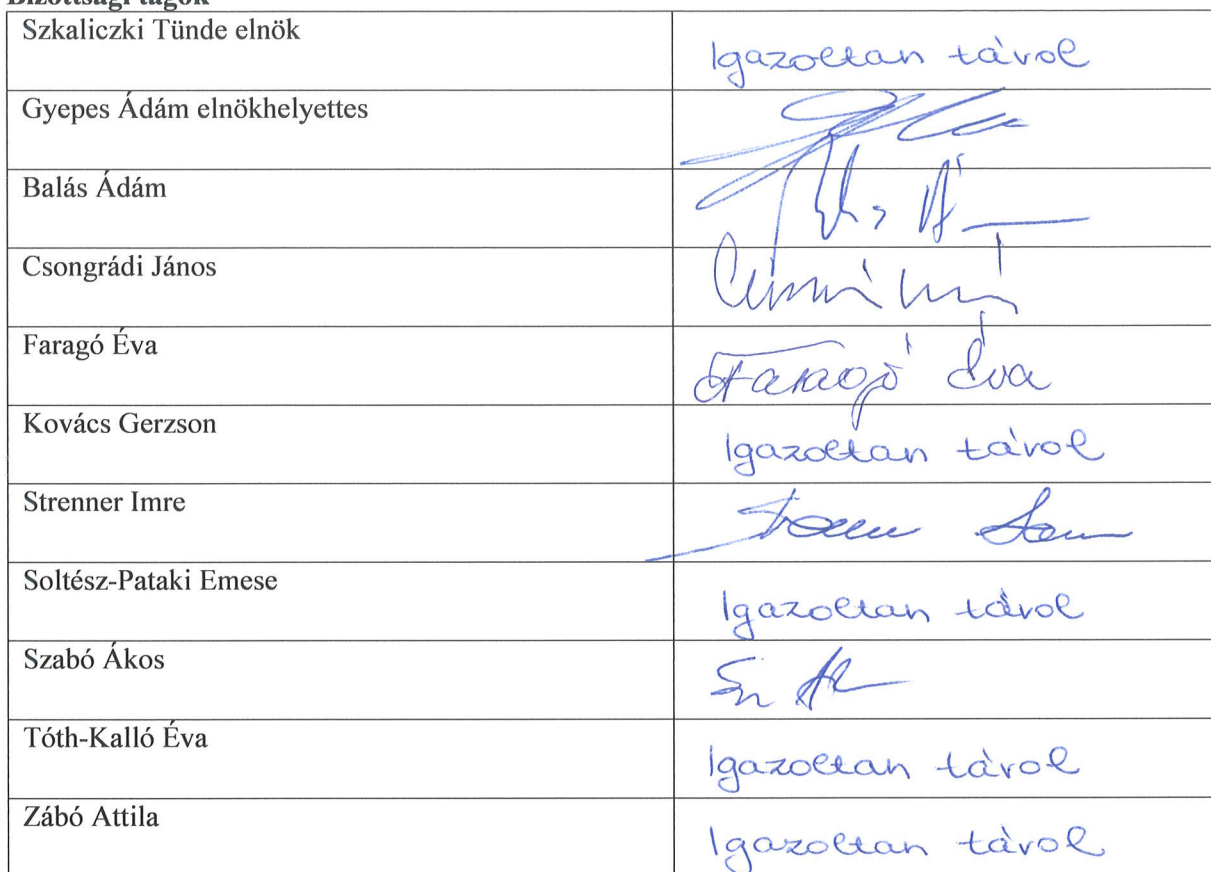 Bizottsági tagok
Szkaliczki Tünde elnök
Igazoltan távol
Gyepes Ádám elnökhelyettes
Balás Ádám
Csongrádi János
Faragó Éva
Faragó Éva
Kovács Gerzson
Igazoltan távol
Strenner Imre
Soltész-Pataki Emese
Igazoltan távol
Szabó Ákos
Tóth-Kalló Éva
Igazoltan távol
Zábó Attila
Igazoltan távol